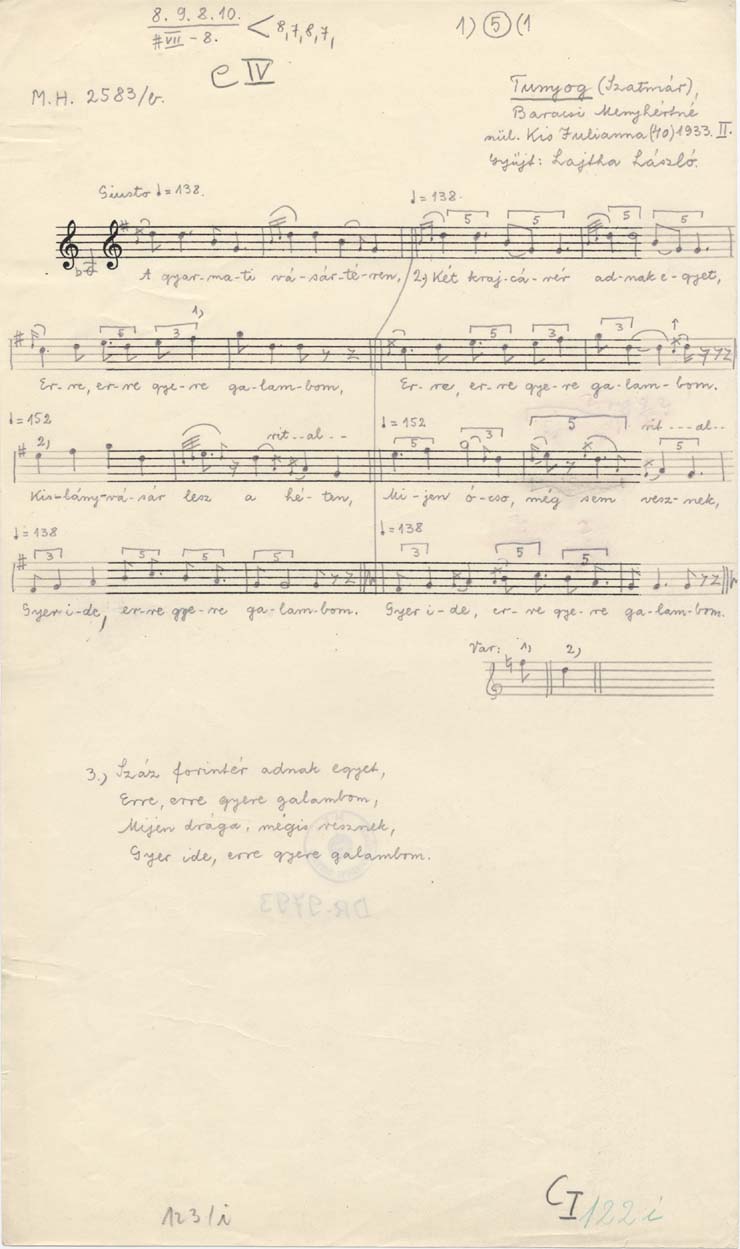 8. 9. 8. 10.
#VII - 8.
< 8, 7, 8, 7,
1) 5 (1
C IV
M.H. 2583/b.
Tunyog (Szatmár),
Baracsi Menyhértné
szül. Kis Julianna (40) 1933. II.
Gyűjt: Lajtha László.
Giusto ♩= 138.
♩= 138.
5 5 5 5
A gyar-ma-ti vá-sár-té-ren, 2) Két kraj-cá-rér ad-nak e-gyet,
6 3 1) 5 3 3
Er-re, er-re gye-re ga-lam-bom, Er-re, er-re gye-re ga-lam-bom.
♩= 152
♩= 152
2) rit--al-- 5 3 5 rit---al-- 5
Kis-lány-vá-sár lesz a hé-ten, Mi-jen ó-cso, még sem vesz-nek,
♩= 138
♩= 138
3 5 5 5 3 5 5
Gyer-i-de, er-re gye-re ga-lam-bom. Gyer i-de, er-re gye-re ga-lam-bom.
Var: 1) 2)
3.) Száz forintér adnak egyet,
Erre, erre gyere galambom,
Mijen drága, mégis vesznek,
Gyer ide, erre gyere galambom.
DR-9793
123/i
CI 122 i